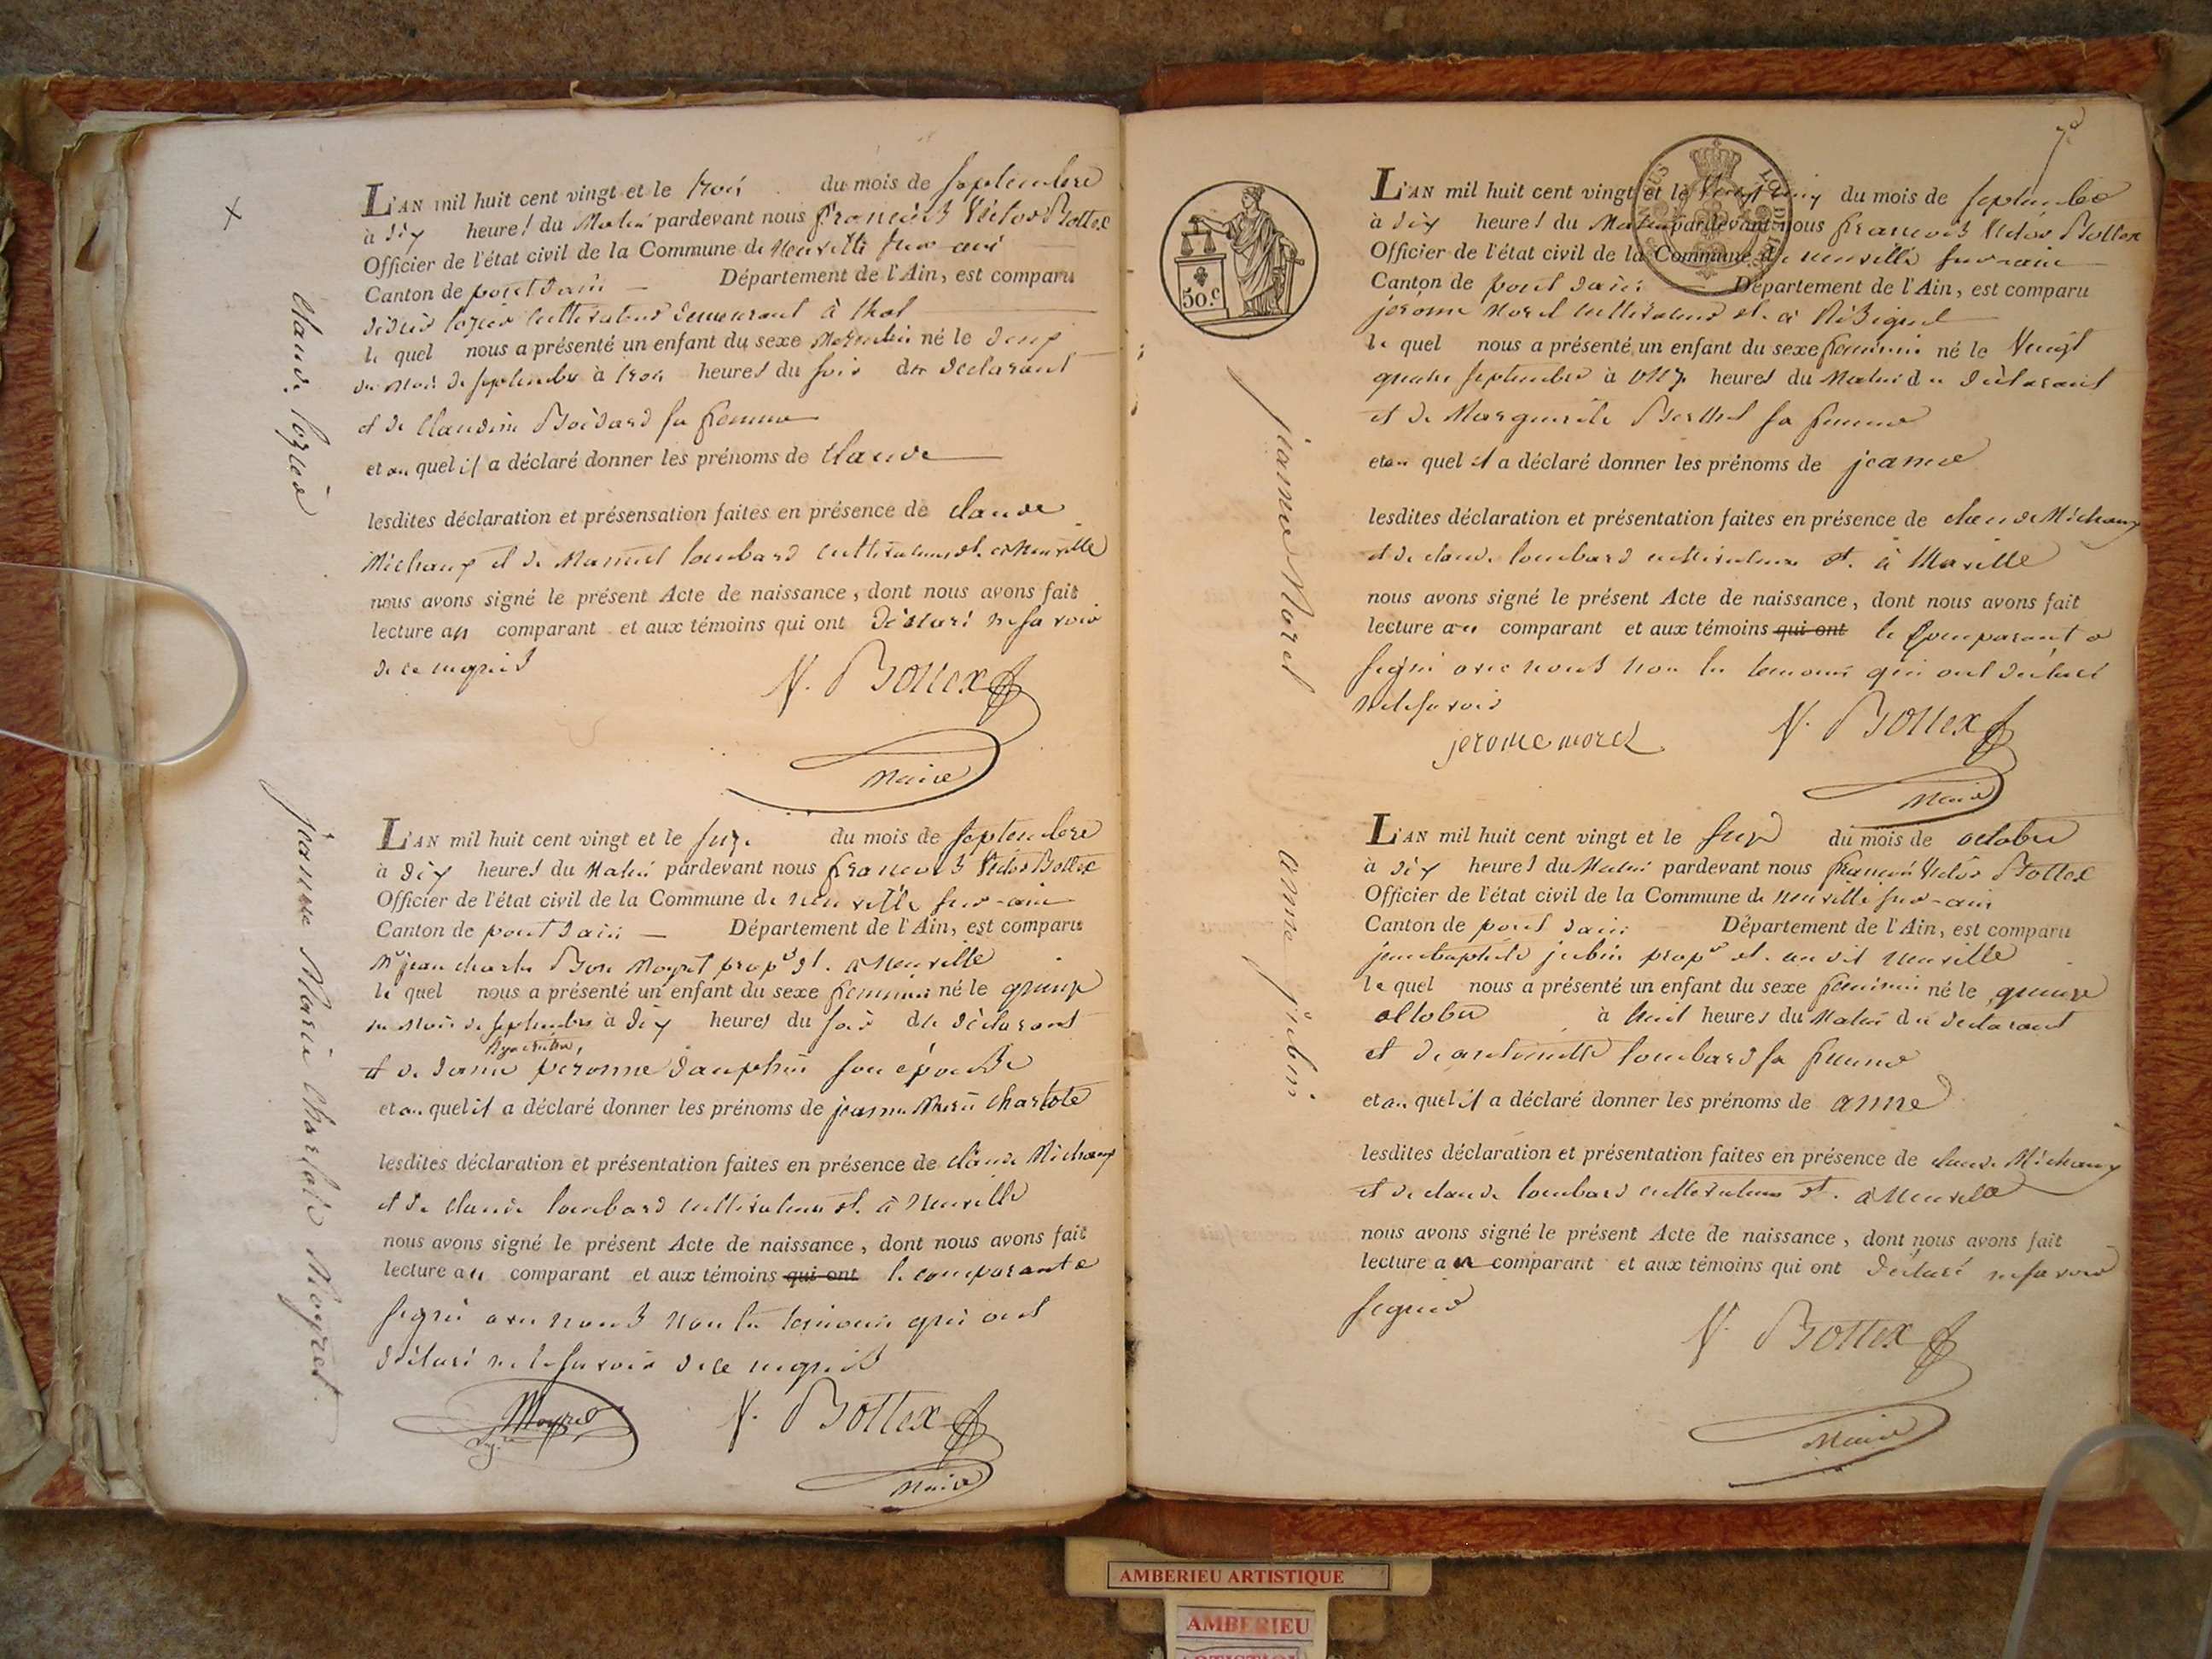 L'AN mil huit cent vingt et le trois du mois de septembre
à dix heures du Matin pardevant nous francois Victor Bottex
Officier de l'état civil de la Commune de Neuville sur ain
Canton de pont dain Département de l'Ain, est comparu
cultivateur demeurant à thol
le quel nous a présenté un enfant du sexe Masculin né le deux
du mois de septembre à trois heures du soir du declarant
et de Claudine Boidard sa femme
et au quel il a déclaré donner les prénoms de Claude
lesdites déclaration et présensation faites en présence de Claude
Michaux et de Manuel lombard cultivateurs dt. à Neuville
nous avons signé le présent Acte de naissance, dont nous avons fait
lecture au comparant et aux témoins qui ont déclaré ne savoir
de ce requis
V. Bottex
Maire
L'AN mil huit cent vingt et le seize du mois de septembre
à dix heures du Matin pardevant nous francois Victor Bottex
Officier de l'état civil de la Commune de neuville sur-ain
Canton de pont dain Département de l'Ain, est comparu
Mr jean charles Bon Moyret propre dt. à Neuville
le quel nous a présenté un enfant du sexe feminin né le quinze
du mois de septembre à dix heures du soir du déclarant
et de dame peronne dauphin son épouse
et au quel il a déclaré donner les prénoms de jeanne Marie charlote
lesdites déclaration et présentation faites en présence de claude Michaux
et de claude lombard cultivateurs dt. à Neuville
nous avons signé le présent Acte de naissance, dont nous avons fait
lecture au comparant et aux témoins qui ont le comparant a
signé avec nous non les temoins qui ont
déclaré ne le savoir de ce requis
Moyret
V. Bottex
Maire
jeanne Marie Charlote Moyret.
7
50.c
L'AN mil huit cent vingt et le Vingt cinq du mois de septembre
à dix heures du Matin pardevant nous francois Victor Bottex
Officier de l'état civil de la Commune de neuville sur-ain
Canton de pont dain Département de l'Ain, est comparu
jerome Morel cultivateur dt. à
le quel nous a présenté un enfant du sexe feminin né le Vingt
quatre septembre à onze heures du Matin du déclarant
et de Marguerite Berthet sa femme
et au quel il a déclaré donner les prénoms de jeanne
lesdites déclaration et présentation faites en présence de claude Michaux
et de claude lombard cultivateurs dt. à Neuville
nous avons signé le présent Acte de naissance, dont nous avons fait
lecture au comparant et aux témoins qui ont le comparant a
signé avec nous non les temoins qui ont déclaré
ne le savoir
jerome morel
V. Bottex
Maire
jeanne Morel
L'AN mil huit cent vingt et le seize du mois de octobre
à dix heures du Matin pardevant nous francois Victor Bottex
Officier de l'état civil de la Commune de neuville sur-ain
Canton de pont dain Département de l'Ain, est comparu
jean baptiste jubin propre dt. au dit neuville
le quel nous a présenté un enfant du sexe feminin né le quinze
octobre à huit heures du Matin du declarant
et de antoinette lombard sa femme
et au quel il a déclaré donner les prénoms de anne
lesdites déclaration et présentation faites en présence de claude Michaux
et de claude lombard cultivateurs dt. à Neuville
nous avons signé le présent Acte de naissance, dont nous avons fait
lecture au comparant et aux témoins qui ont déclaré ne savoir
signer
V. Bottex
Maire
anne jubin
AMBERIEU ARTISTIQUE
AMBERIEU
ARTISTIQUE